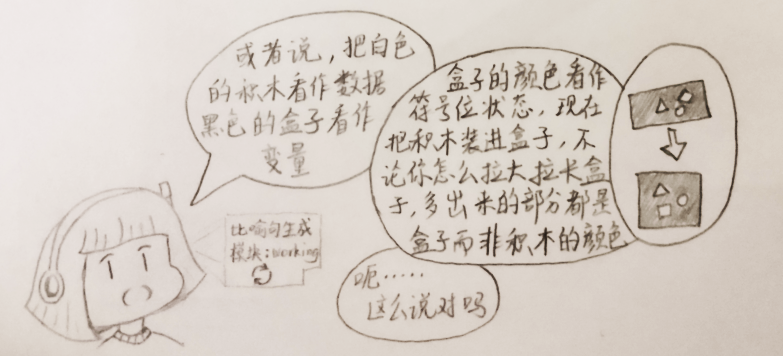 或者说，把白色
的积木看作数据
黑色的盒子看作
变量
盒子的颜色看作
符号位状态，现在
把积木装进盒子，不
论你怎么拉大拉长盒
子，多出来的部分都是
盒子而非积木的颜色
比喻句生成
模块：working
呃……
这么说对吗